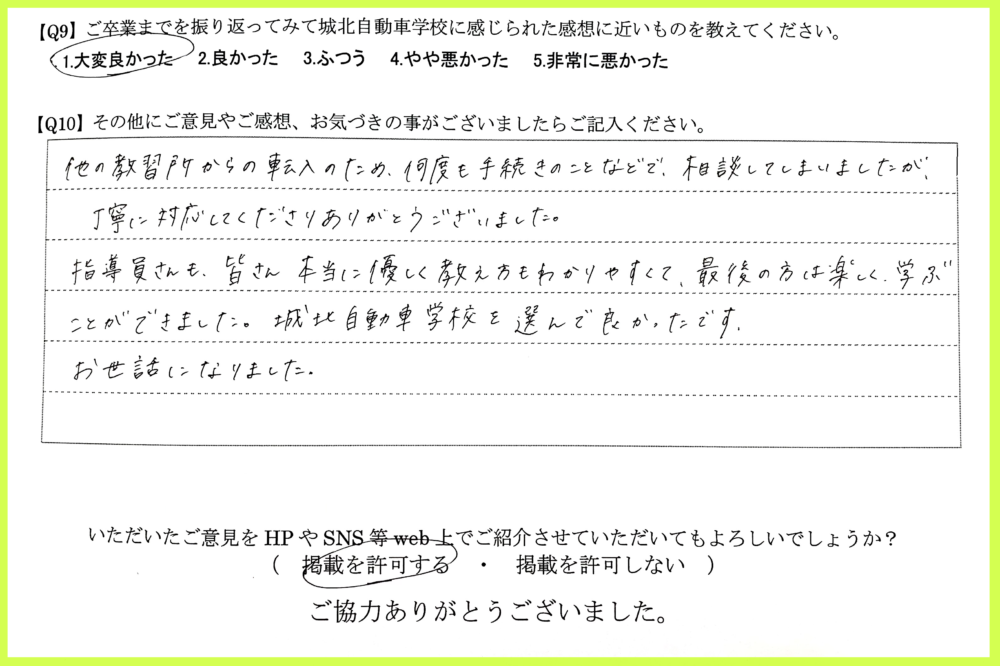 【Q9】ご卒業までを振り返ってみて城北自動車学校に感じられた感想に近いものを教えてください。
1.大変良かった 2.良かった 3.ふつう 4.やや悪かった 5.非常に悪かった
【Q10】その他にご意見やご感想、お気づきの事がございましたらご記入ください。
他の教習所からの転入のため、何度も手続きのことなどで、相談してしまいましたが、
丁寧に対応してくださりありがとうございました。
指導員さんも、皆さん本当に優しく教え方もわかりやすくて、最後の方は楽しく、学ぶ
ことができました。城北自動車学校を選んで良かったです。
お世話になりました。
いただいたご意見をHPやSNS等web上でご紹介させていただいてもよろしいでしょうか?
( 掲載を許可する ・ 掲載を許可しない )
ご協力ありがとうございました。